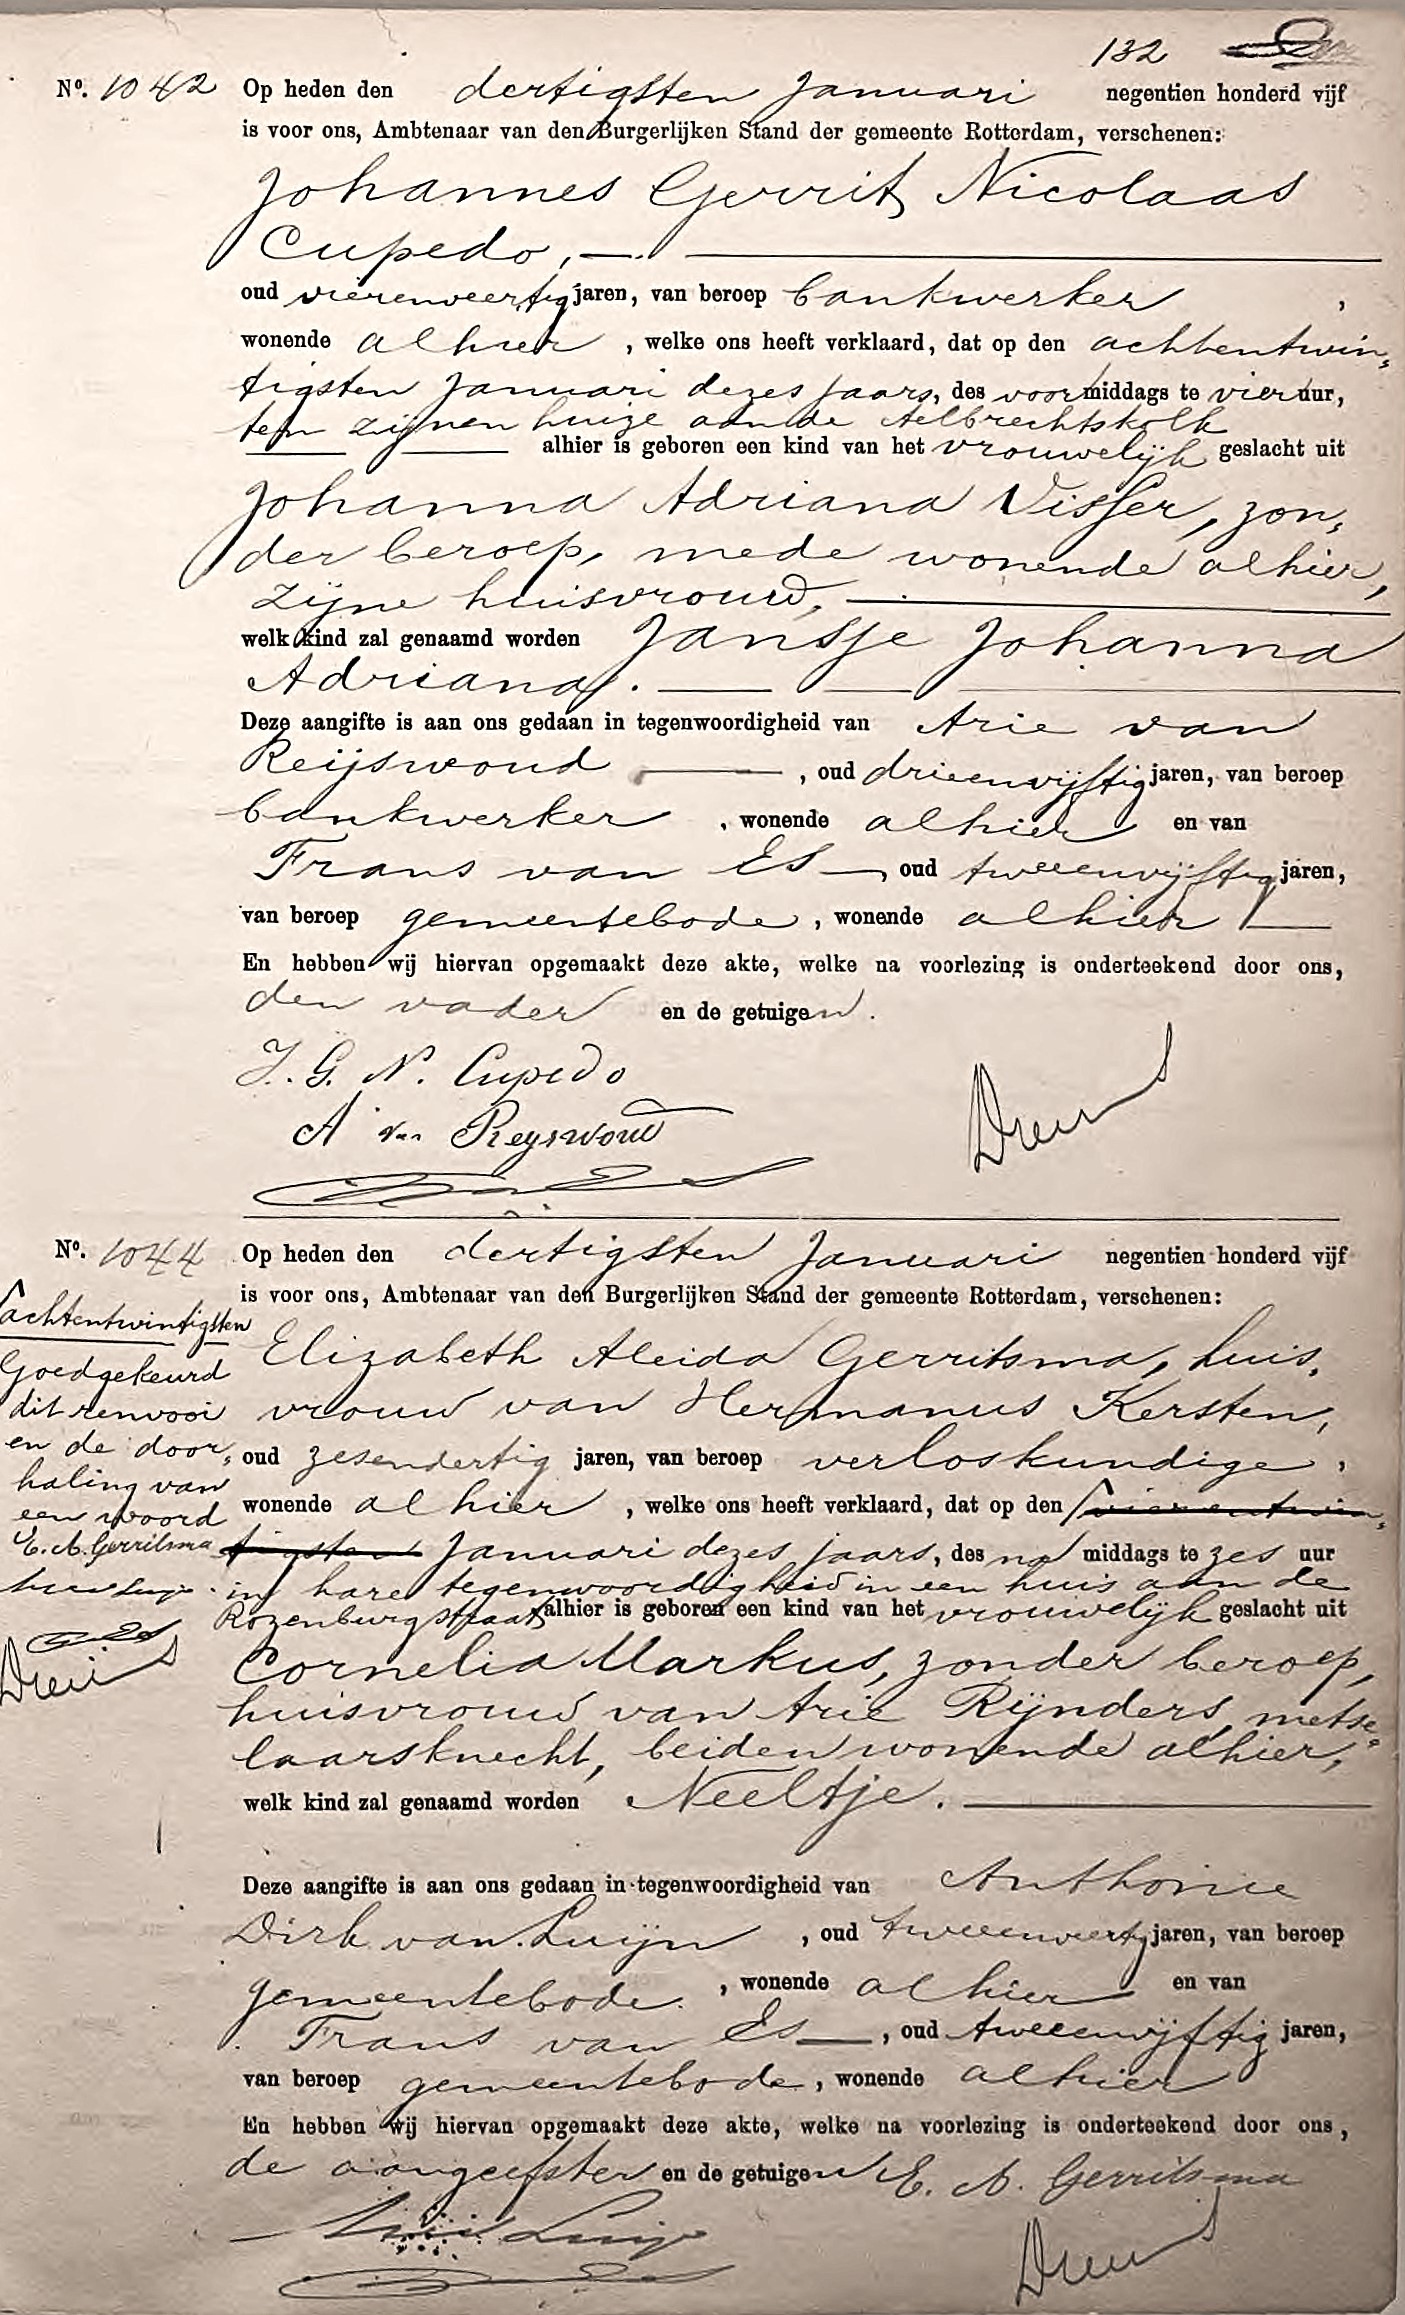 132
Nº. 1042 Op heden den dertigsten Januari negentien honderd vijf
is voor ons, Ambtenaar van den Burgerlijken Stand der gemeente Rotterdam, verschenen:
Johannes Gerrit Nicolaas
Cupedo,
oud vierenveertig jaren, van beroep bankwerker,
wonende alhier, welke ons heeft verklaard, dat op den achtentwin„
tigsten Januari dezes jaars, des voormiddags te vier uur,
ten zijnen huize aan de Aelbrechtskolk
alhier is geboren een kind van het vrouwelijk geslacht uit
Johanna Adriana Visser, zon„
der beroep, mede wonende alhier,
zijne huisvrouw,
welk kind zal genaamd worden Jansje Johanna
Adriana.
Deze aangifte is aan ons gedaan in tegenwoordigheid van Arie van
Reijswoud, oud drieenvijftig jaren, van beroep
bankwerker, wonende alhier en van
Frans van Es, oud tweeenvijftig jaren,
van beroep gemeentebode, wonende alhier
En hebben wij hiervan opgemaakt deze akte, welke na voorlezing is onderteekend door ons,
den vader en de getuigen.
J. G. N. Cupedo
A van Reyswoud
Nº. 1044 Op heden den dertigsten Januari negentien honderd vijf
is voor ons, Ambtenaar van den Burgerlijken Stand der gemeente Rotterdam, verschenen:
Elizabeth Aleida Gerritsma, huis„
vrouw van Hermanus Kersten,
oud zesendertig jaren, van beroep verloskundige,
wonende alhier, welke ons heeft verklaard, dat op den vierentwin„
tigsten Januari dezes jaars, des na middags te zes uur
in hare tegenwoordigheid in een huis aan de
Rozenburgstraat alhier is geboren een kind van het vrouwelijk geslacht uit
Cornelia Markus, zonder beroep,
huisvrouw van Arie Rijnders, metse„
laarsknecht, beiden wonende alhier,
welk kind zal genaamd worden Neeltje.
Deze aangifte is aan ons gedaan in tegenwoordigheid van Anthonie
Dirk van Luijn, oud tweeenveertig jaren, van beroep
gemeentebode, wonende alhier en van
Frans van Es, oud tweeenvijftig jaren,
van beroep gemeentebode, wonende alhier
En hebben wij hiervan opgemaakt deze akte, welke na voorlezing is onderteekend door ons,
de aangeefster en de getuigen E. A. Gerritsma
achtentwintigsten
Goedgekeurd
dit renvooi
en de door„
haling van
een woord
E. A. Gerritsma